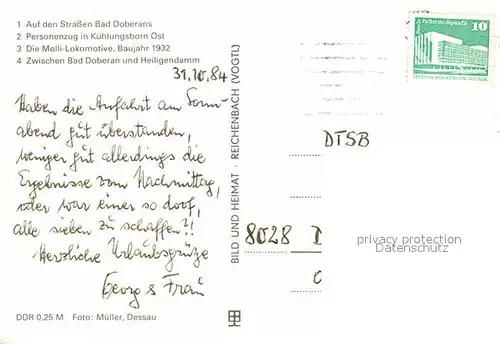 1 Auf den Straßen Bad Doberans
2 Personenzug in Kühlungsborn Ost
3 Die Molli-Lokomotive, Baujahr 1932
4 Zwischen Bad Doberan und Heiligendamm
31.10.84
Haben die Anfahrt am Sonn-
abend gut überstanden,
weniger gut allerdings die
Ergebnisse vom Nachmittag,
oder war einer so doof,
alle sieben zu schaffen?!
Herzliche Urlaubsgrüße
Georg & Frau
DDR 0,25 M Foto: Müller, Dessau
BILD UND HEIMAT · REICHENBACH (VOGTL)
10
DTSB
8028 D
privacy protection
Datenschutz